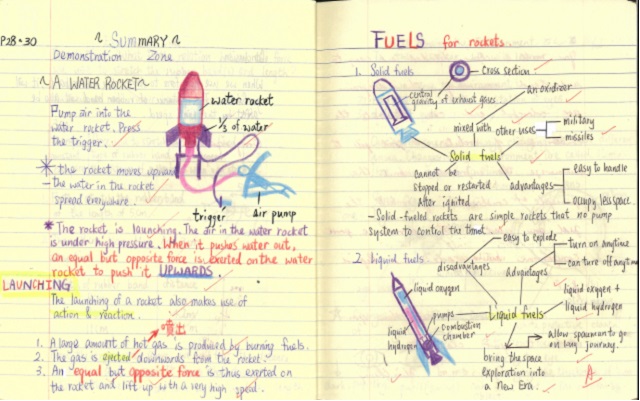 P28-30
~ SUMMARY ~
Demonstration Zone
~ A WATER ROCKET ~
Pump air into the
water rocket. Press
the trigger.
water rocket
1/3 of water
trigger
air pump
* the rocket moves upward
- the water in the rocket
spread everywhere.
* The rocket is launching. The air in the water rocket
is under high pressure. When it pushes water out,
an equal but opposite force is exerted on the water
rocket to push it UPWARDS.
LAUNCHING
The launching of a rocket also makes use of
action & reaction.
喷出
1. A large amount of hot gas is produced by burning fuels.
2. The gas is ejected downwards form the rocket.
3. An "equal but opposite force" is thus exerted on
the rocket and lift up with a very high speed.
FUELS for rockets
1. Solid fuels
cross section
central
gravity of exhaust gases
an oxidizer
mixed with
other uses
military
missiles
Solid fuels
cannot be
stopped or restarted
After ignited
advantages
easy to handle
occupy less space
- Solid-fueled rockets are simple rockets that no pump
system to control the
easy to explode
2. Liquid fuels
disadvantages
Advantages
turn on anytime
can turn off anytime
liquid oxygen
pumps
combustion
chamber
liquid
hydrogen
Liquid fuels
liquid oxygen +
liquid hydrogen
allow spaceman to go
on long journey.
bring the space
exploration into
a New Era.
A